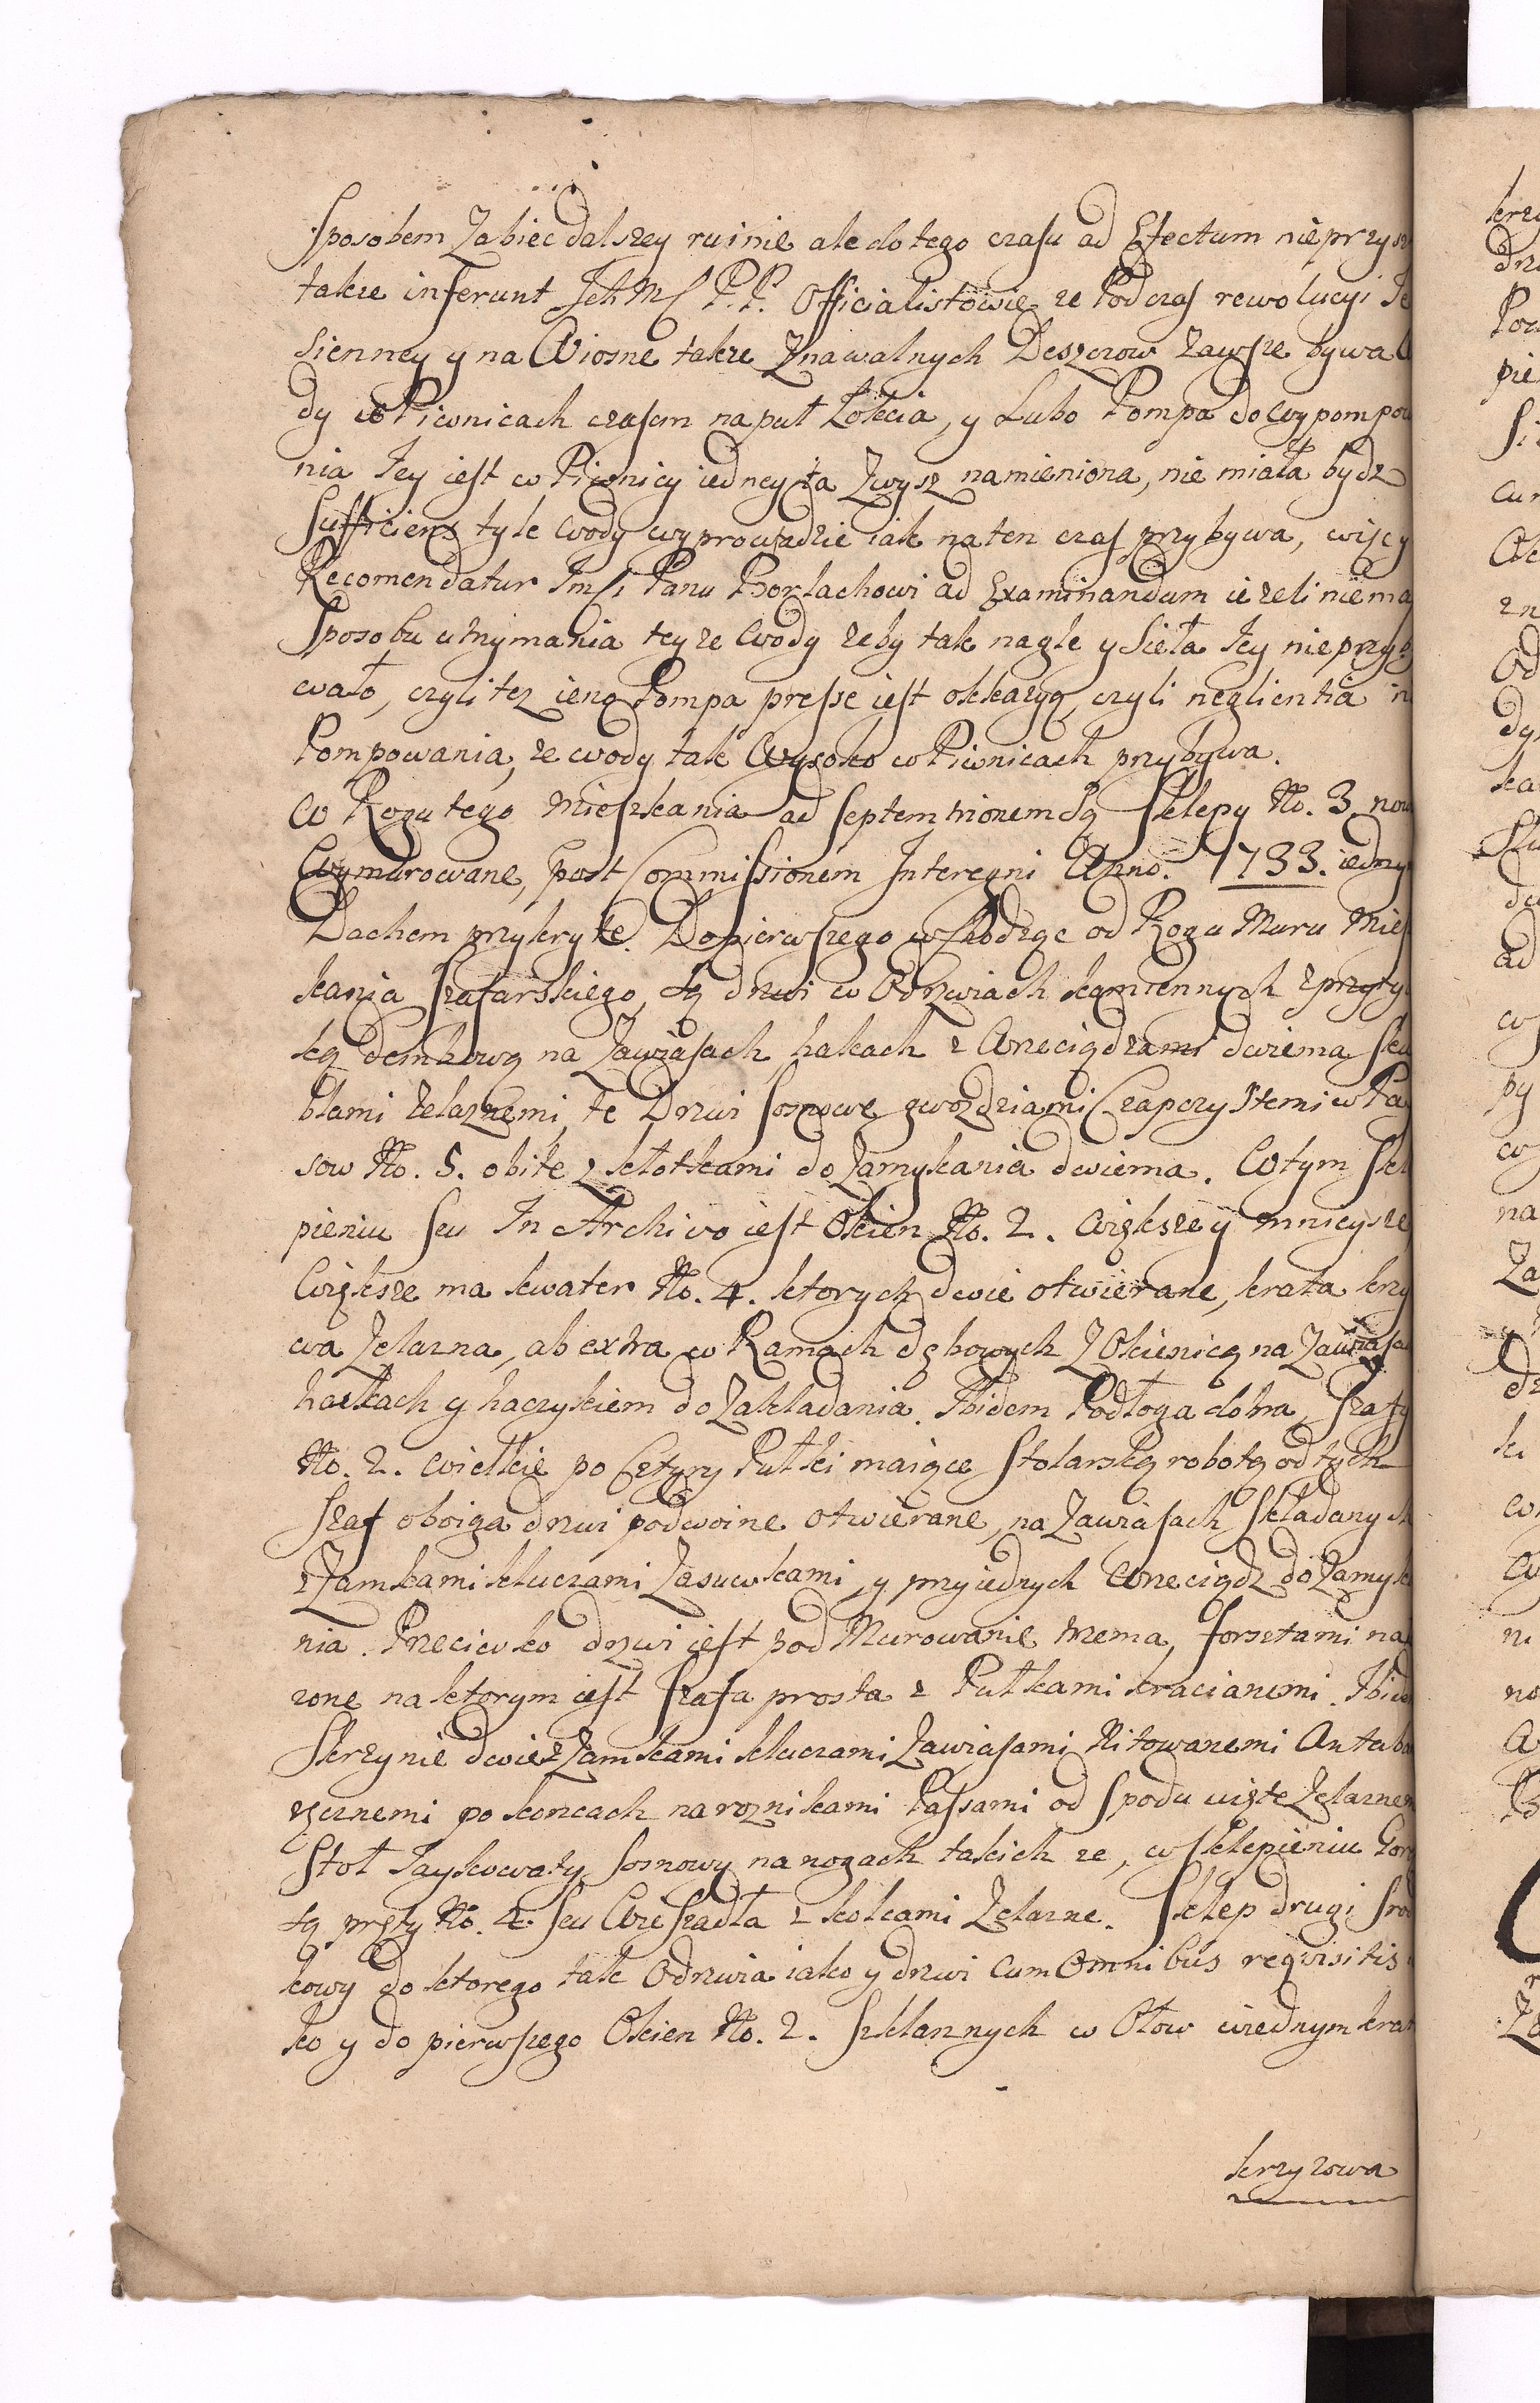 Sposobem Zabiec dalszey ruinie ale do tego czasu ad Efectum nie przysz
takze inferunt Ich Mć P.P. Officialistowie ze Podczas rewolucyi Je
sienney y na Wiosne takze Znawalnych Deszczow zawsze bywa W
dy w Piwnicach czasem na puł Łokcia, y Lubo Pompa do Wypompow
nia Jey iest w Piwnicy iedney ta Zwysz namieniona, nie miała bydz
Sufficiens tyle Wody wyprowadzic iak na ten czas przybywa, więc y
Recomendatur Jmći Panu Borlachowi ad Examinandum iezeli niema
Sposobu utrzymania teyze Wody zeby tak nagle y Sieła Jey nie przyby
wało, czyli tez iena Pompa presse iest okkazyą, czyli neglientia in
Pompowania, ze wody tak Wysoko w Piwnicach przybywa.
W Rogu tego Mieszkania ad Septemtrionem Są Sklepy No. 3 now
Wymurowane, post Commissionem Interegni Anno. 1733. iedny
Dachem przykryte. Do pierwszego wchodząc od Rogu Muru Mies
kania Szafarskiego, są drzwi w Odrzwiach kamiennych z przyty
ką dembową na Zawiasach hakach z Wrzeciądzami dwiema sku
blami zelaznemi, te Drzwi sosnowe gwozdziami Czapczystemi w Pa
sow No. 5. obite z kłotkami do Zamykania dwiema. W tym Skl
pieniu seu In Archivo iest Okien No. 2. większe y mnieysze
Większe ma kwater No. 4. ktorych dwie otwierane, krata krzy
wa Zelazna, ab extra w Ramach dębowych Z Okienicą na Zawiasa
hakach y haczykiem do Zakładania. Ibidem Podłoga dobra, Szafy
No. 2. wielkie po Cztyry Pułki maiące Stolarską robotą od tych
szaf oboiga drzwi podwoine otwierane, na Zawiasach Składanych
z Zamkami kluczami Zasuwkami, y przy iednych Wrzeciądz do Zamyka
nia. Przeciwko drzwi iest pod Murowanie trzema, forsztami na
zone na ktorym iest Szafa prosta z Pułkami kracianemi. Ibide
Skrzynie dwie z Zamkami kluczami Zawiasami Nitowanemi Antaba
ręcznemi po koncach naroznikami Passami od spodu wzięte Zelaznem
Stoł Taykowaty sosnowy na nogach takich ze, w sklepieniu Gorn
są pręty No. 4. seu Wieszadła z kolkami Zelazne. Sklep drugi srod
kowy do ktorego tak Odrzwia iako y drzwi Cum Omnibus reqvisitis
ko y do pierwszego Okien No. 2. Szklannych w Ołow w iednym krat
krzyzowa